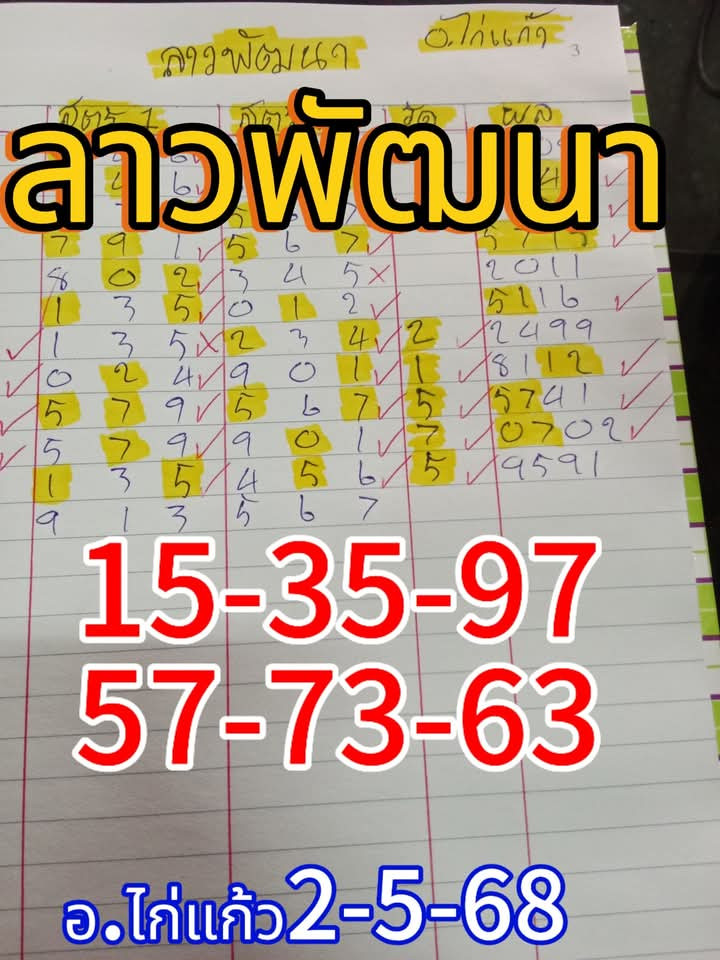 ลาวพัฒนา อ.ไก่แก้ว 3
สูตร 1 รูด ผล
ลาวพัฒนา
7 9 1 5 6 7 5715
8 0 2 3 4 5 2011
1 3 5 0 1 2 5116
1 3 5 2 3 4 2 2499
0 2 4 9 0 1 1 8112
5 7 9 5 6 7 5 5741
5 7 9 9 0 1 7 0702
1 3 5 4 5 6 5 9591
9 1 3 5 6 7
15-35-97
57-73-63
อ.ไก่แก้ว2-5-68